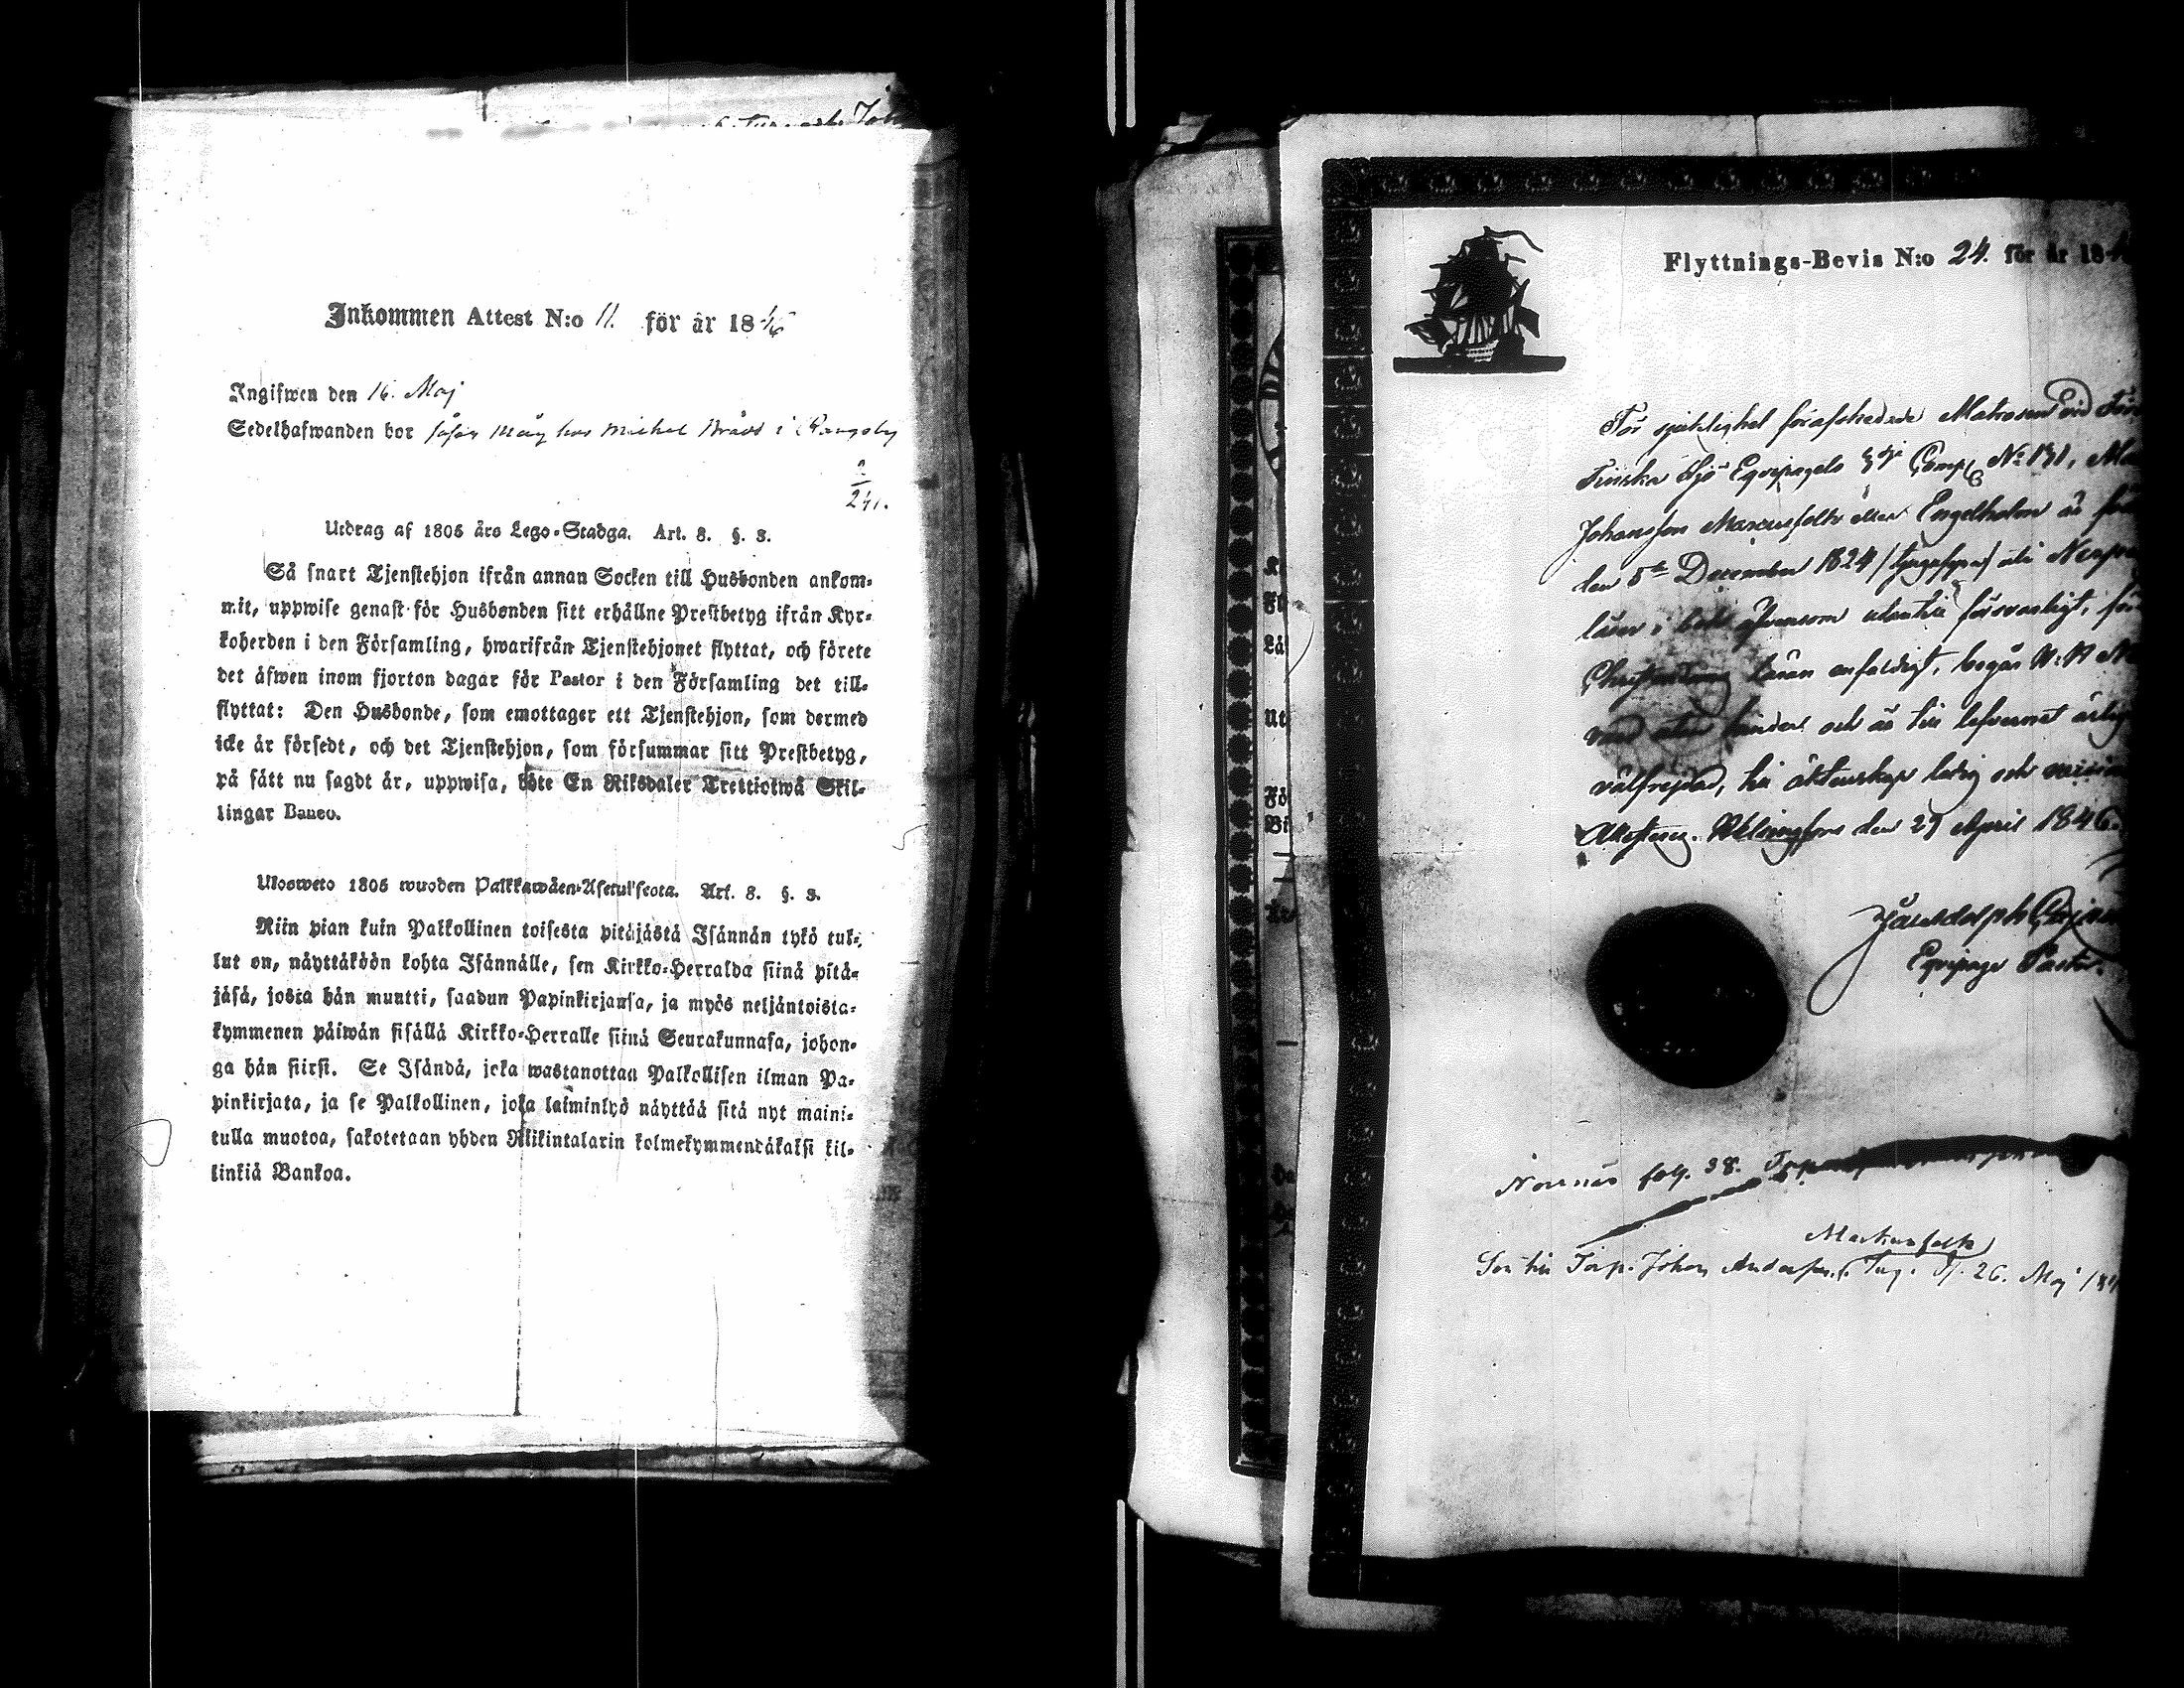 Inkommen Attest N:o 11. för år 1846
Ingifwen den 16. Maj
Sedelhafwanden bor såsom måg hos Michel i Rangsby
2
241.
Utdrag af 1805 års Lego-Stadga. Art. 8. §. 3.
Så snart Tjenstehjon ifrån annan Socken till Husbonden ankom-
mit, uppwise genast för Husbonden sitt erhållne Prestbetyg ifrån Kyr-
koherden i den Församling, hwarifrån Tjenstehjonet flyttat, och förete
det äfwen inom fjorton dagar för Pastor i den Församling det till-
flyttat: Den Husbonde, som emottager ett Tjenstehjon, som dermed
icke är försedt, och det Tjenstehjon, som försummar sitt Prestbetyg,
på sätt nu sagdt är, uppwisa, böte En Riksdaler Trettiotwå Skil-
lingar Banco.
Ulosweto 1805 wuoden Palkkawäen-Asetuksesta. Art. 8. §. 3.
Niin pian kuin Palkollinen toisesta pitäjästä Isännän tykö tul-
lut on, näyttäköön kohta Isännälle, sen Kirkko-Herralda siinä pitä-
jäsä, josta hän muutti, saadun Papinkirjansa, ja myös neljäntoista-
kymmenen päiwän sisällä Kirkko-Herralle siinä Seurakunnasa, johon-
ga hän siirsi. Se Isändä, joka wastanottaa Palkollisen ilman Pa-
pinkirjata, ja se Palkollinen, joka laiminlyö näyttää sitä nyt maini-
tulla muotoa, sakotetaan yhden Riikintalarin kolmekymmentäkaksi kil-
linkiä Bankoa.
Flyttnings-Bevis N:o 24. för år 184
För sjuklighet förafskedade Matrosen vid Förs
Finska Sjö Equipagets 3dje Comp. No 131,
Johansson Marcusfolk eller Engelholm är född
den 5te December 1824 /tjugufyra/ uti Nerpes
läser i bok äfvensom utantill försvarligt, för
Christendoms Läran enfaldigt, begår H: H
vard utan hinder och är till lefvernet ärlig
välfrejdad, till äktenskap ledig och
Attesteras. Helsingfors den 27 April 1846.
Equipage Pastor.
Norrnäs fol. 38.
Marcusfolk
Son till Torp. Johan Andersson. Ing. d. 26. Maj